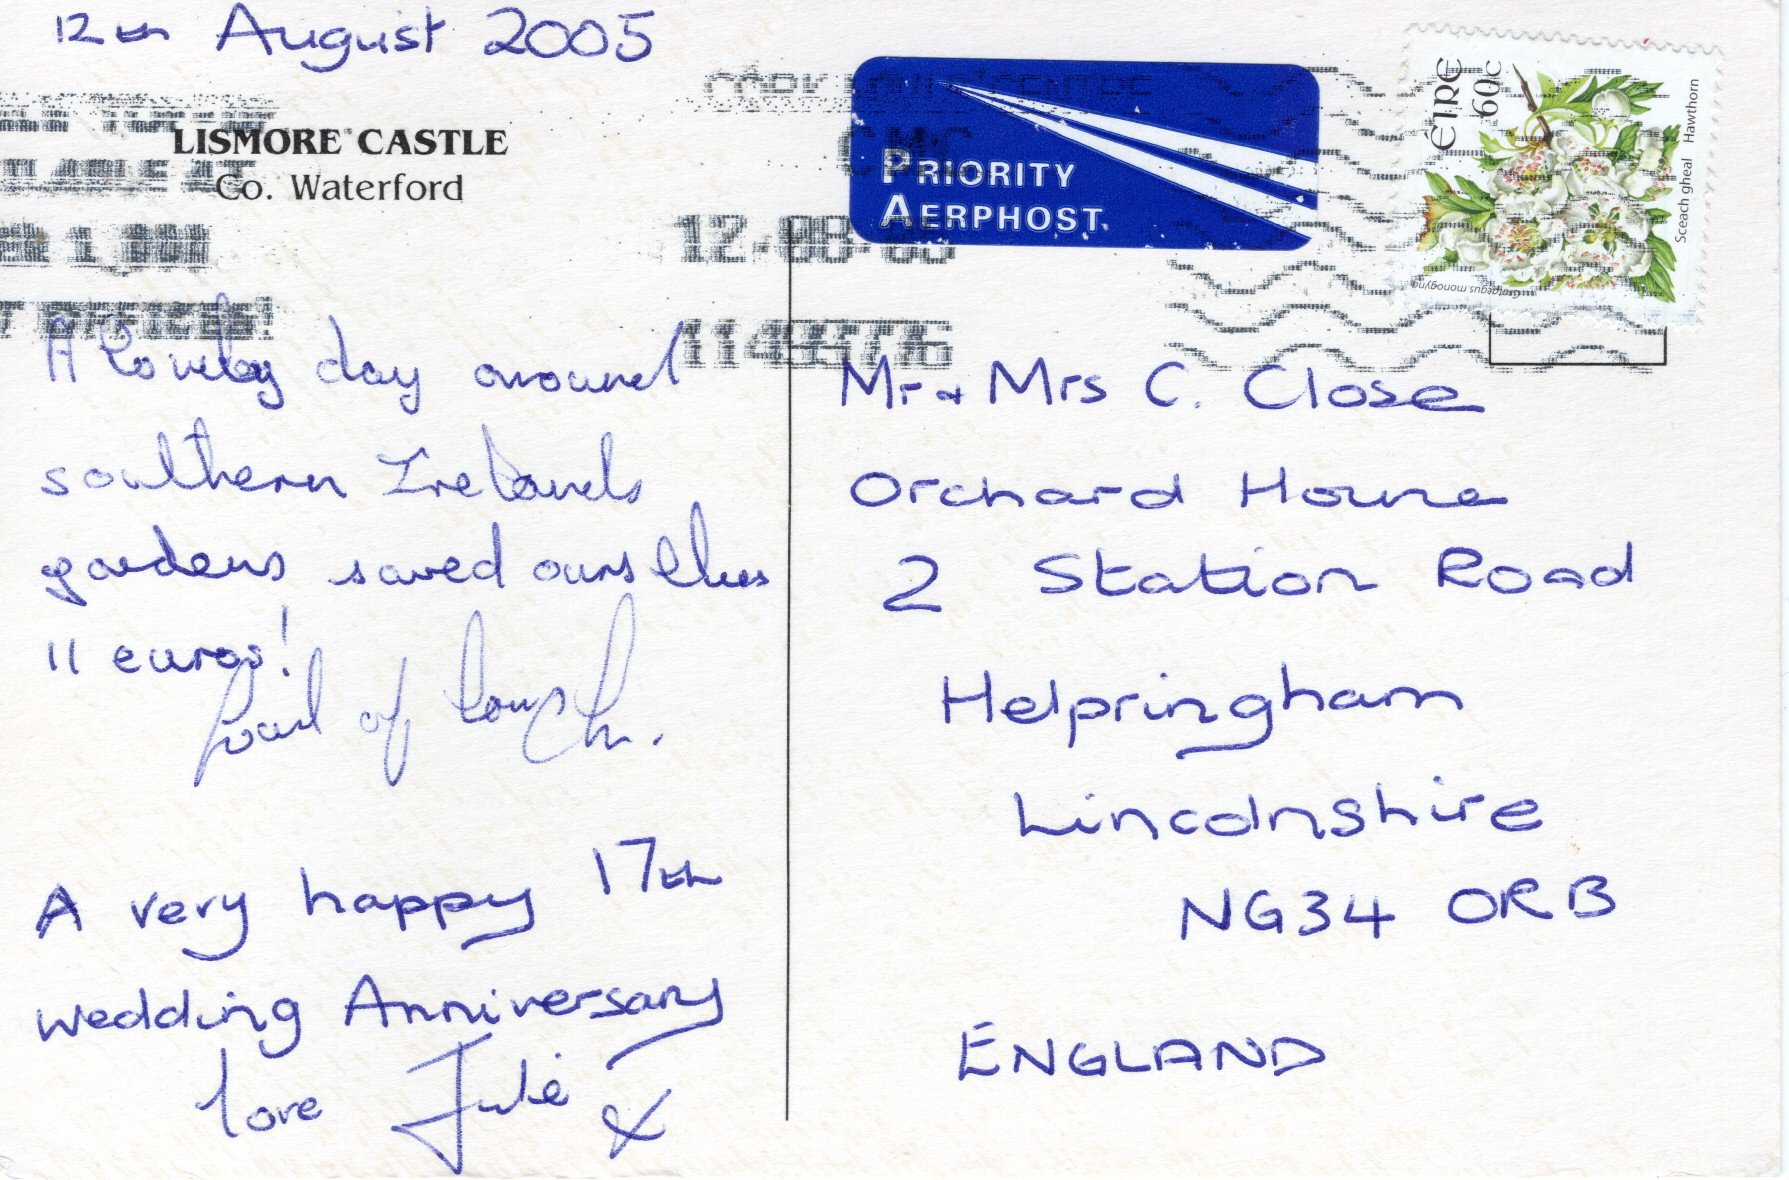 12th August 2005
LISMORE CASTLE
Co. Waterford
A lovely day around
southern Irelands
gardens saved ourselves
11 euros!
of
A very happy 17th
wedding Anniversary
love Julie x
PRIORITY
AERPHOST
CMC
12-08-05
ÉIRE
60c
Sceach gheal Hawthorn
Crataegus monogyna
Mr & Mrs C. Close
Orchard House
2 Station Road
Helpringham
Lincolnshire
NG34 ORB
ENGLAND